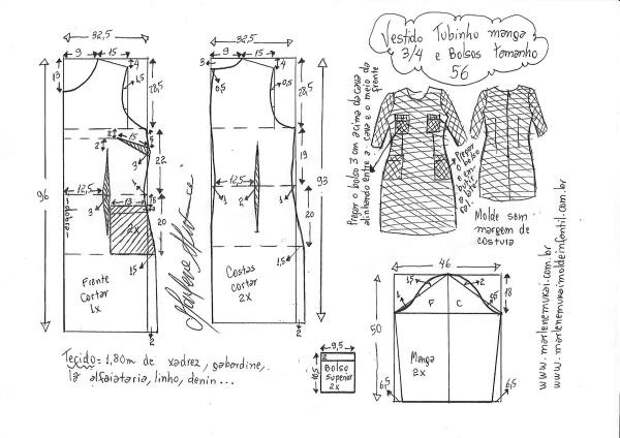 Vestido Tubinho manga
3/4 e Bolsos tamanho
56
32,5
9
15
4
13
1,5
28,5
96
2
15
5
2
3
22
12,5
1
3
13
dobra
2x
20
15
Frente
Cortar
1x
2
32,5
3
9
15
4
0,5
0,5
28,5
19
93
12,5
1
3
1
20
1,5
Costas
cortar
2x
2
Pregar o bolso 3 cm acima da cava
alinhando entre a cava e o meio da
frente
Pregar
o bolso
Molde sem
margem de
costura
46
1,5
2
F
C
18
50
Manga
2x
6,5
6,5
9,5
2
10,5
Bolso
superior
2x
Tecido = 1,80m de xadrez, gabardine,
lã alfaiataria, linho, denin...
www.marlenemukai.com.br
www.marlenemukaimoldeinfantil.com.br